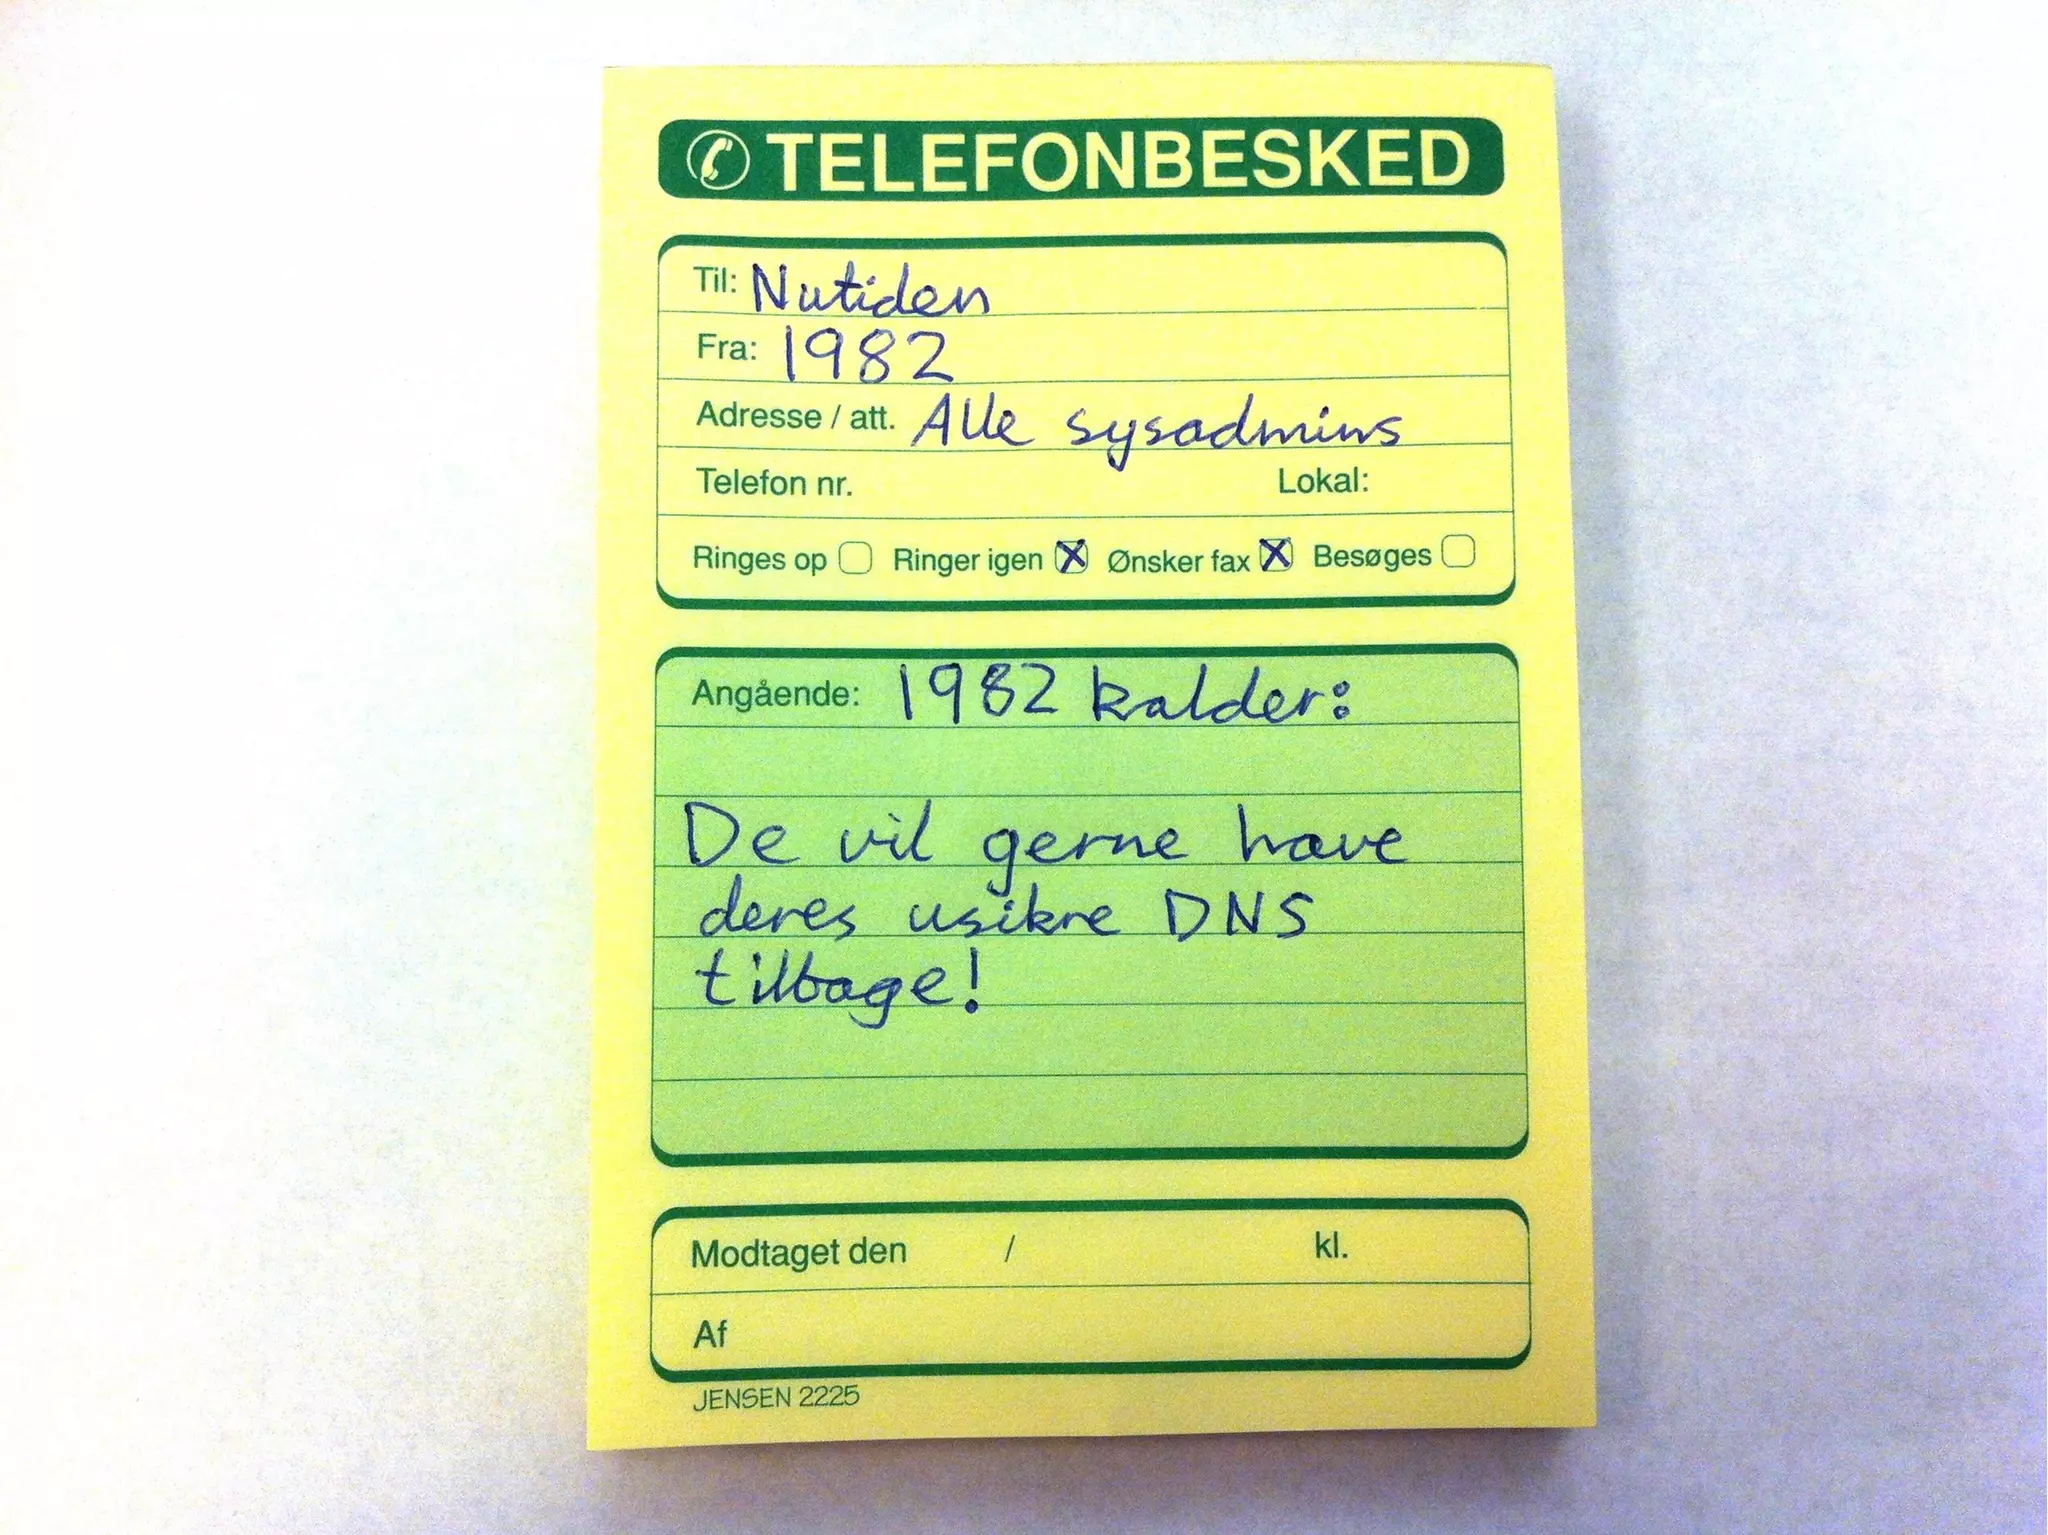 TELEFONBESKED
Til: Nutiden
Fra: 1982
Adresse / att. Alle sysadmins
Telefon nr. Lokal:
Ringes op Ringer igen X Ønsker fax X Besøges
Angående: 1982 kalder:
De vil gerne have
deres usikre DNS
tilbage!
Modtaget den / kl.
Af
JENSEN 2225